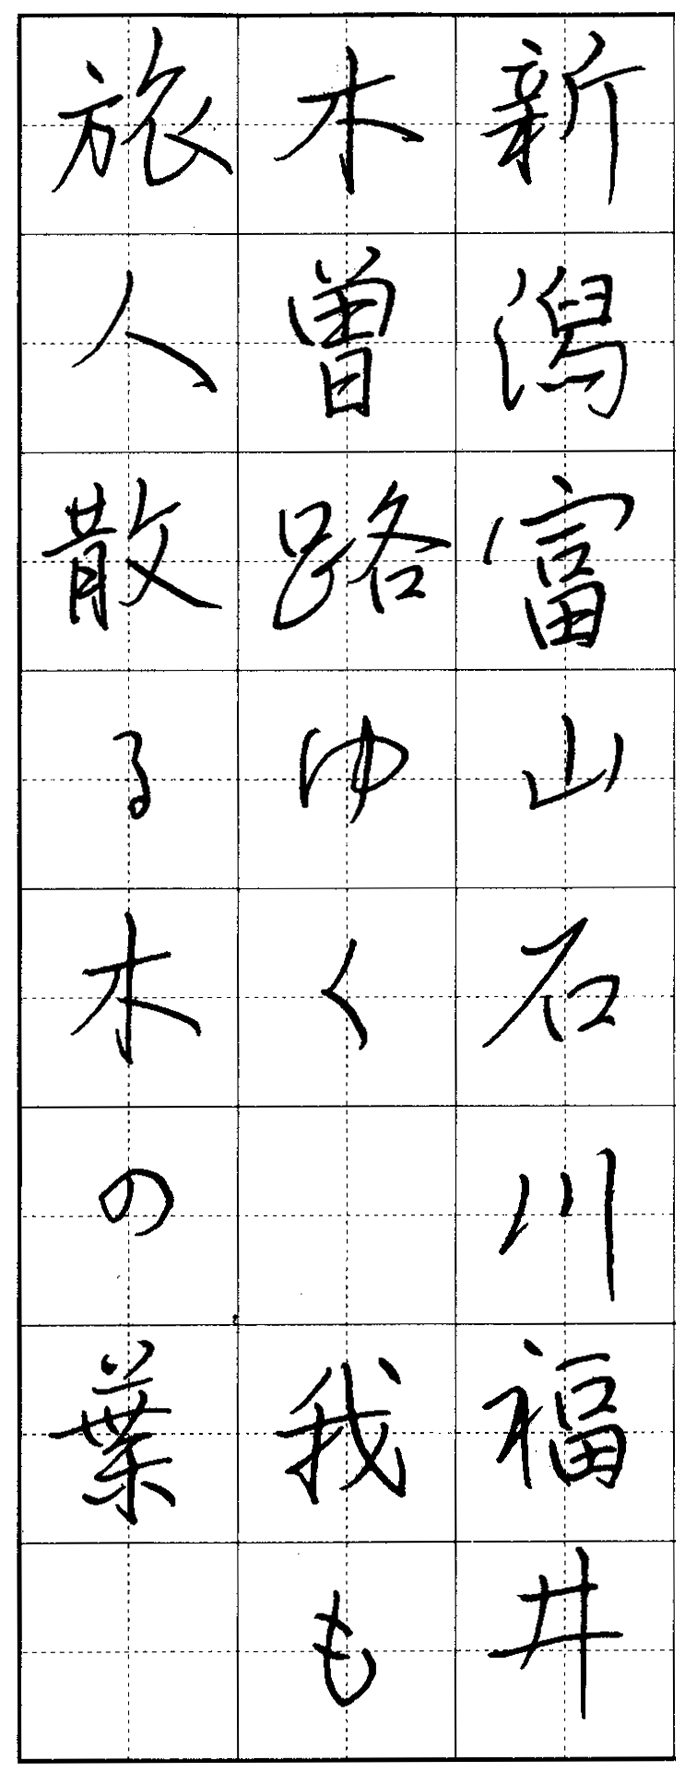 新潟富山石川福井
木曽路ゆく　我も
旅人散る木の葉